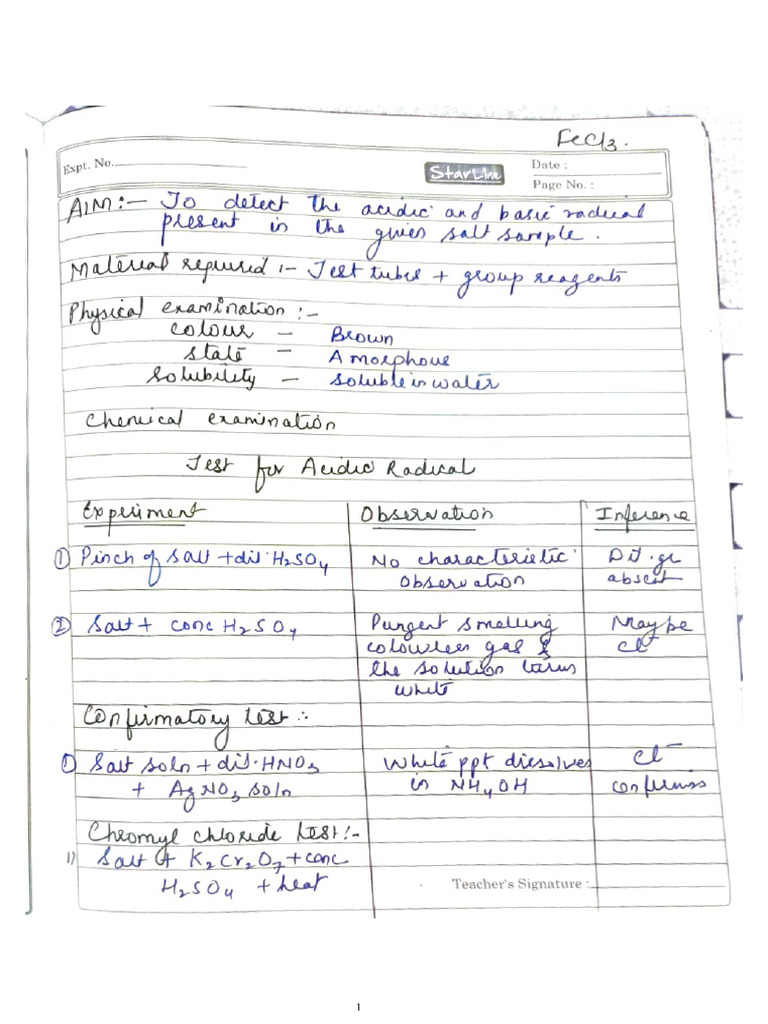 FeCl3.
Expt. No.
StarLine
Date :
Page No. :
AIM:- To detect the acidic and basic radical
present in the given salt sample.
Material required :- Test tubes + group reagents
Physical examination :-
colour - Brown
state - Amorphous
Solubility - soluble in water
Chemical examination
Test for Acidic Radical
Experiment Observation Inference
① Pinch of salt + dil. H2SO4 No characteristic Dil. gr
observation absent
② Salt + conc H2SO4 Pungent smelling Maybe
colourless gas & Cl-
the solution turns
white
Confirmatory test :-
① Salt soln + dil. HNO3 White ppt dissolves Cl-
+ AgNO3 soln in NH4OH confirms
Chromyl chloride test:-
1) Salt + K2Cr2O7 + conc
H2SO4 + heat
Teacher's Signature :
1